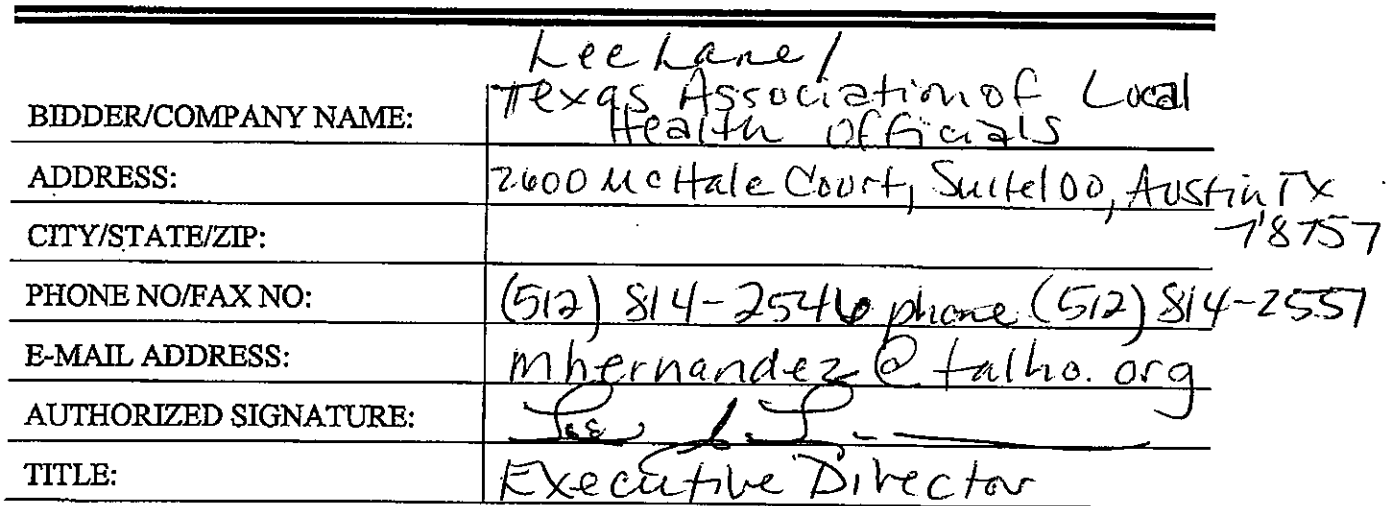 Lee Lane/
BIDDER/COMPANY NAME: Texas Association of Local
Health Officials
ADDRESS: 2600 McHale Court, Suite 100, Austin TX
78757
CITY/STATE/ZIP:
PHONE NO/FAX NO: (512) 814-2546 phone (512) 814-2557
E-MAIL ADDRESS: mhernandez@talho.org
AUTHORIZED SIGNATURE:
TITLE: Executive Director